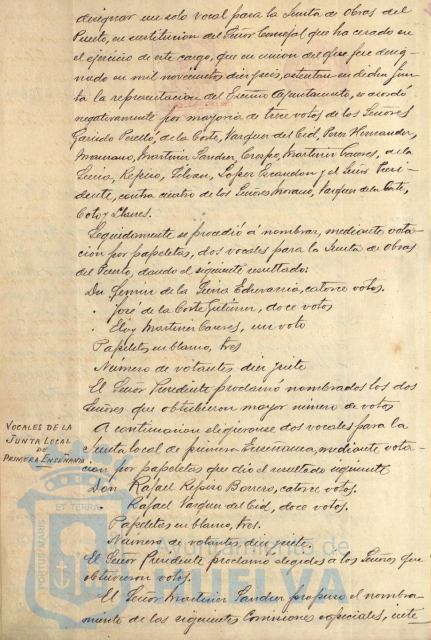 designar un solo vocal para la Junta de Obras del
Puerto, en sustitucion del Señor Concejal que ha cesado en
el ejercicio de este cargo, que en union del que fue desig-
nado en mil novecientos diez y seis, ostenten en dicha Jun-
ta la representacion del Excmo Ayuntamiento, se acordó
negativamente por mayoria de trece votos de los Señores
Garrido Perelló, de la Corte, Vazquez del Cid, Perez Hernandez,
Marzano, Martinez Sanchez, Crespo, Martinez Caceres, de la
Feria, Repiso, Tolvan, Lopez Escandon y el Señor Presi-
dente, contra cuatro de los Señores Morano, Vazquez de la Corte,
Coto y Llanes.
Seguidamente se procedió á nombrar, mediante vota-
cion por papeletas, dos vocales para la Junta de Obras
del Puerto, dando el siguiente resultado:
Don Fermin de la Feria Echevarria, catorce votos.
" José de la Corte Gutierrez, doce votos
" Eloy Martinez Caceres, un voto
Papeletas en blanco, tres
Número de votantes diez y siete
El Señor Presidente proclamó nombrados los dos
Señores que obtubieron mayor número de votos
VOCALES DE LA
JUNTA LOCAL
DE
PRIMERA ENSEÑANZA
A continuacion eligieronse dos vocales para la
Junta local de primera Enseñanza, mediante vota-
cion por papeletas que dio el resultado siguiente
Don Rafael Repiso Borrero, catorce votos.
" Rafael Vazquez del Cid, doce votos.
Papeletas en blanco, tres.
Número de votantes, diez y siete.
El Señor Presidente proclamo elegidos a los Señores que
obtuvieron votos.
El Señor Martinez Sanchez propuso el nombra-
miento de las siguientes Comisiones especiales, siete
PORTUS MARIS
ET TERRAE
Ayuntamiento de
HUELVA